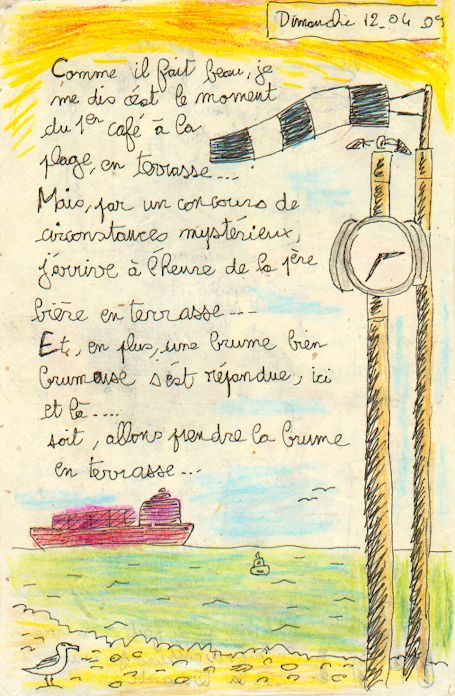 Dimanche 12_04_09
Comme il fait beau, je
me dis c'est le moment
du 1er café à la
plage, en terrasse...
Mais, par un concours de
circonstances mystérieux,
j'arrive à l'heure de la 1ère
bière en terrasse...
Et, en plus, une brume bien
brumeuse s'est répandue, ici
et là....
soit, allons prendre la brume
en terrasse...